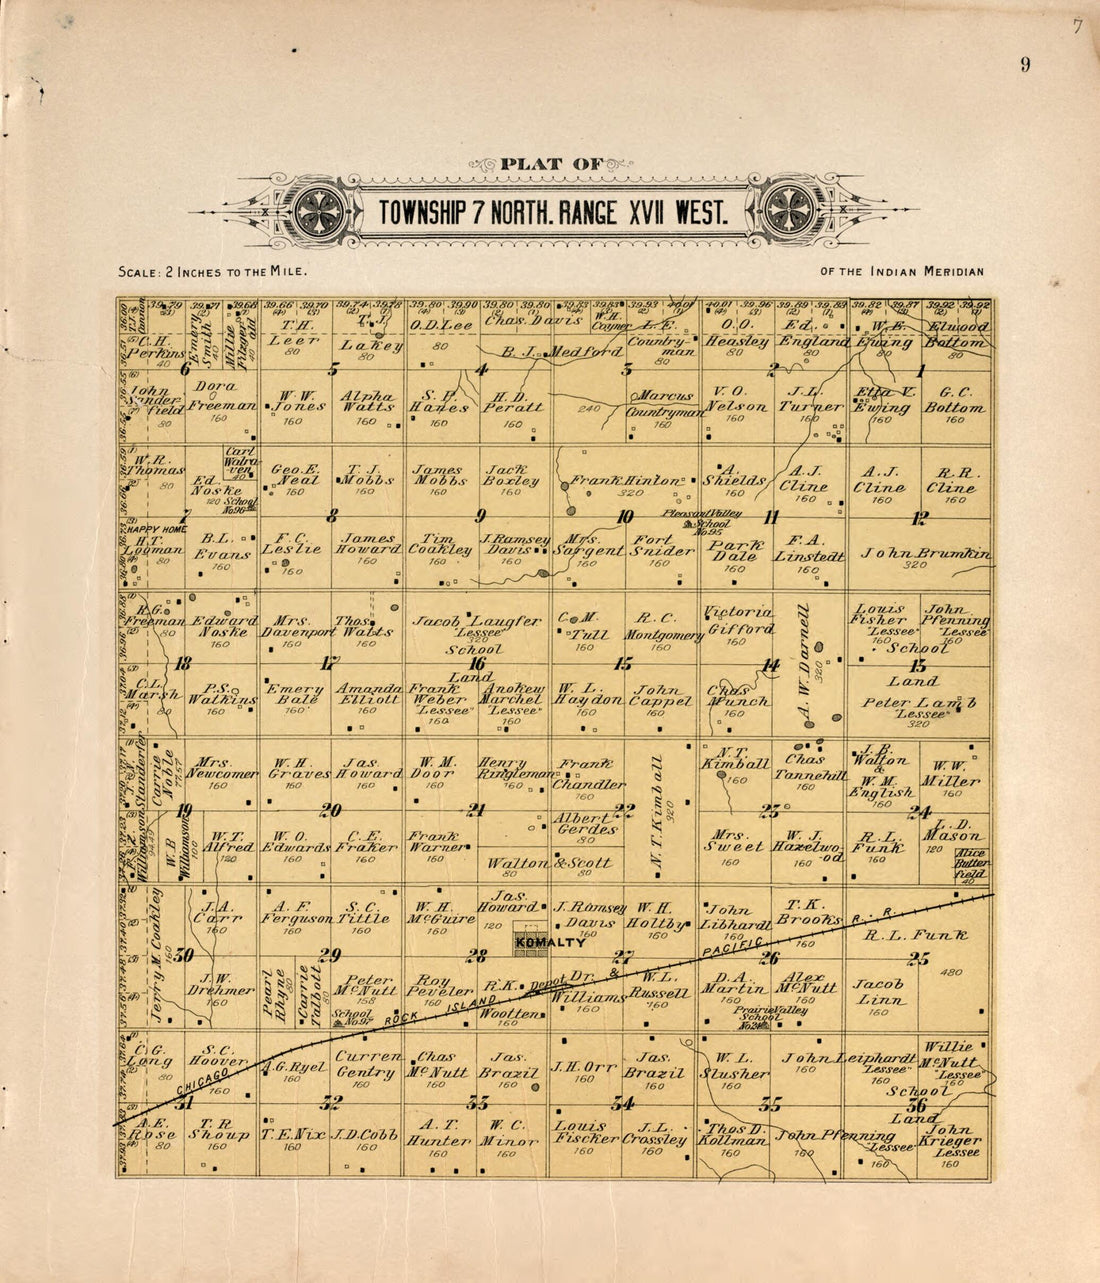 7
9
PLAT OF
TOWNSHIP 7 NORTH. RANGE XVII WEST.
SCALE: 2 INCHES TO THE MILE.
OF THE INDIAN MERIDIAN
39.79 39.77 39.68 39.66 39.70 39.74 39.78 39.80 39.90 39.80 39.80 39.83 39.83 39.93 40.01 40.01 39.96 39.89 39.83 39.82 39.87 39.92 39.92
C.H. Perkins 40
Emery Smith 40
Millie Fitzgerald 40
T.H. Leer 80
T.J. Lakey 80
O.D. Lee 80
Chas. Davis
B. J. Medford
W.H. Coyner
L.E. Countryman 80
O.O. Heasley 80
Ed. England 80
W.E. Ewing 80
Elwood Bottom 80
6 5 4 3 2 1
John Sanderfield 80
Dora Freeman 160
W.W. Jones 160
Alpha Watts 160
S. P. Hanes 160
H.D. Peratt 160
240
Marcus Countryman 160
V.O. Nelson 160
J.L. Turner 160
Etta V. Ewing 160
G.C. Bottom 160
W.R. Thomas 80
Ed. Noske 120
Carl Walraven 40
School No96
Geo.E. Neal 160
T.J. Mobbs 160
James Mobbs 160
Jack Boxley 160
Frank Hinton 320
A. Shields 160
A.J. Cline 160
A.J. Cline 160
R.R. Cline 160
7 8 9 10 11 12
HAPPY HOME
Pleasant Valley School No95
H.T. Logman 80
B.L. Evans 160
F.C. Leslie 160
James Howard 160
Tim Coakley 160
J.Ramsey Davis 160
Mrs. Sargent 160
Fort Snider 160
Park Dale 160
F.A. Linstedt 160
John Brumkin 320
R.G. Freeman 80
Edward Noske 160
Mrs. Davenport 160
Thos. Watts 160
Jacob Laugfer
"Lessee" 320
School Land
C.M. Tull 160
R.C. Montgomery 160
Victoria Gifford 160
A. W. Darnell 320
Louis Fisher "Lessee" 160
John Pfenning "Lessee" 160
School Land
18 17 16 15 14 13
C.L. Marsh 80
P.S. Watkins 160
Emery Bale 160
Amanda Elliott 160
Frank Weber "Lessee" 160
Anokew Marchel "Lessee" 160
W.L. Haydon 160
John Cappel 160
Chas Punch 160
Peter Lamb "Lessee" 320
Carrie Noble 79.57
Mrs. Newcomer 160
W.H. Graves 160
Jas. Howard 160
W.M. Door 160
Henry Ringleman 160
Frank Chandler 160
N.T. Kimball 320
N.T. Kimball 160
Chas Tannehill 160
J.B. Walton & W.M. English 160
W.W. Miller 160
19 20 21 22 23 24
W.B. Williamson
W.T. Alfred 120
W.O. Edwards 160
C.E. Fraker 160
Frank Warner 160
Walton & Scott 80 80
Albert Gerdes 80
Mrs. Sweet 160
W.J. Hazelwood 160
R.L. Funk 160
L.D. Mason 120
Alice Butterfield 40
Jerry M. Coakley 160
J.A. Carr 160
A.F. Ferguson 160
S.C. Tittle 160
W.H. McGuire 160
Jas. Howard 120
KOMALTY
J.Ramsey Davis 160
W.H. Holtby 160
John Libhardt 160
T.K. Brooks 160
R.L. Funk 480
30 29 28 27 26 25
J.W. Drehmer 160
Pearl Rhyne 80
Carrie Talbott 80
Peter McNutt 158
School No97
Roy Peveler 160
R.K. Wootten 160
Depot
Dr. Williams
W.L. Russell 160
D.A. Martin 160
Alex McNutt 160
Prairie Valley School
Jacob Linn
CHICAGO ROCK ISLAND & PACIFIC R. R.
C.G. Long 80
S.C. Hoover
A.G. Ryel 160
Curren Gentry 160
Chas McNutt 160
Jas. Brazil 160
J.H. Orr 160
Jas. Brazil 160
W.L. Slusher 160
John Leiphardt "Lessee" 160
Willie McNutt "Lessee" 160
School Land
31 32 33 34 35 36
A.E. Rose 80
T.R. Shoup 160
T.E. Nix 160
J.D. Cobb 160
A.T. Hunter 160
W.C. Minor 160
Louis Fischer 160
J.L. Crossley 160
Thos D. Kollman 160
John Pfenning "Lessee" 160
John Krieger Lessee 160